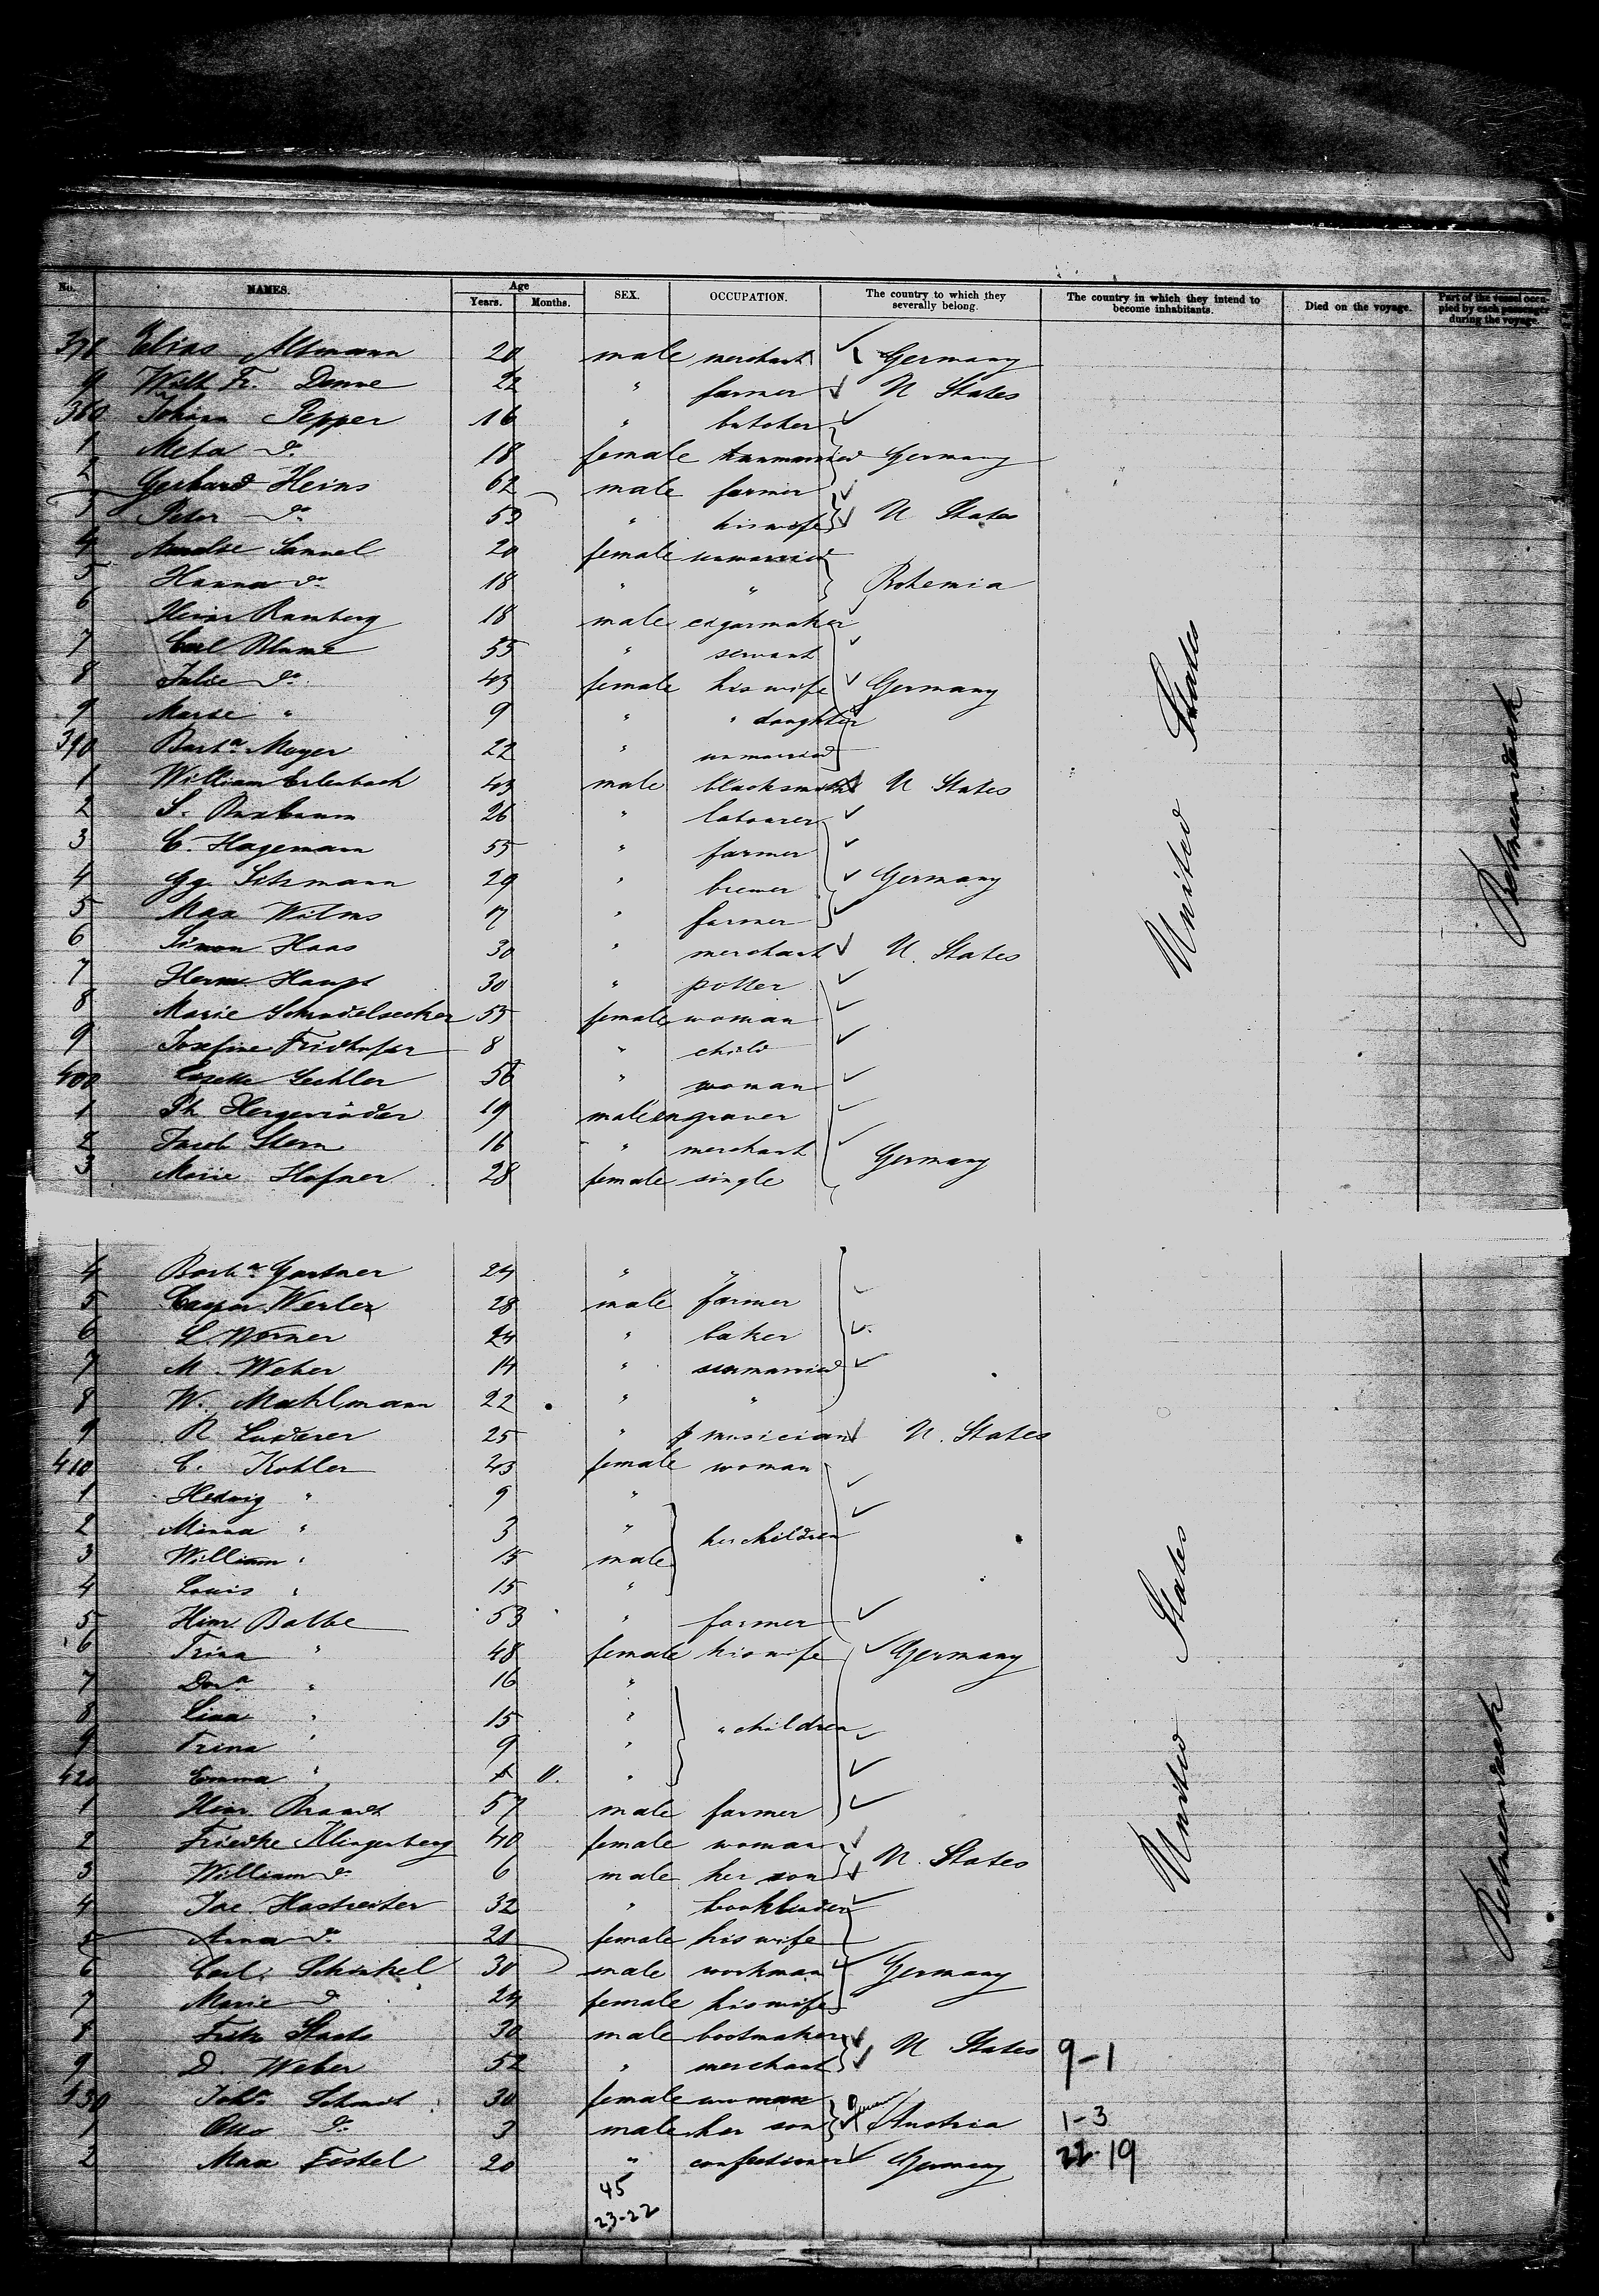 No. NAMES. Age Years. Months. SEX. OCCUPATION. The country to which they severally belong. The country in which they intend to become inhabitants. Died on the voyage. Part of the vessel occupied by each passenger during the voyage.
378 Elias Altmann 20 male merchant Germany
9 Wilh Fr. Denne 22 " farmer U States
380 Johann Pepper 16 " butcher
1 Meta do 18 female unmarried Germany
2 Gerhard Heins 62 male farmer
3 Peter do 53 " his wife U States
4 Amalie Sannel 20 female unmarried
5 Hanna do 18 " " Bohemia
6 Heinr Ramberg 18 male cigarmaker
7 Carl Blume 55 " servant
8 Julie do 43 female his wife Germany
9 Marie " 9 " " daughter
390 Barba Mayer 22 " unmarried
1 William Erlenbach 43 male blacksmith U States
2 S. Buxbaum 26 " labourer
3 C. Hagemann 55 " farmer
4 Gg. Sitzmann 29 " brewer Germany
5 Max Wilms 17 " farmer
6 Simon Haas 30 " merchant U. States
7 Herm Haupt 30 " potter
8 Marie 55 female woman
9 Josefine Fridhofer 8 " child
400 Rosette Sechler 56 " woman
1 Ph Hergenröder 19 male engraver
2 Jacob Stern 16 " merchant Germany
3 Marie Hafner 28 female single
4 Barba Gartner 24 " "
5 Caspar Werler 28 male farmer
6 L Werner 24 " baker
7 M. Weber 14 " unmarried
8 W. Mathlmann 22 " "
9 R Luderer 25 " musician U. States
410 C. Kohler 43 female woman
1 Hedwig " 9 "
2 Minna " 3 " her children
3 William " 15 male
4 Louis " 15 "
5 Hinr. Bathe 53 " farmer
6 Trina " 48 female his wife Germany
7 Dora " 16 "
8 Lina " 15 " " children
9 Trina " 9 "
420 Emma " 11. "
1 Hinr. Brandt 57 male farmer
2 Friedke Klingenberg 40 female woman
3 William do 6 male her son U. States
4 Jac Hastreiter 32 " bookbinder
5 Anna do 20 female his wife
6 Carl Schinkel 30 male workman Germany
7 Marie do 24 female his wife
8 Fritz Staats 30 male bootmaker U States
9 D. Weber 52 " merchant 9-1
430 Joha Schmidt 30 female woman
1 Otto do 3 male her son Austria 1-3
2 Max Festel 20 " confectioner Germany 22-19
45
23-22
United States
Betweendeck
United States
Betweendeck